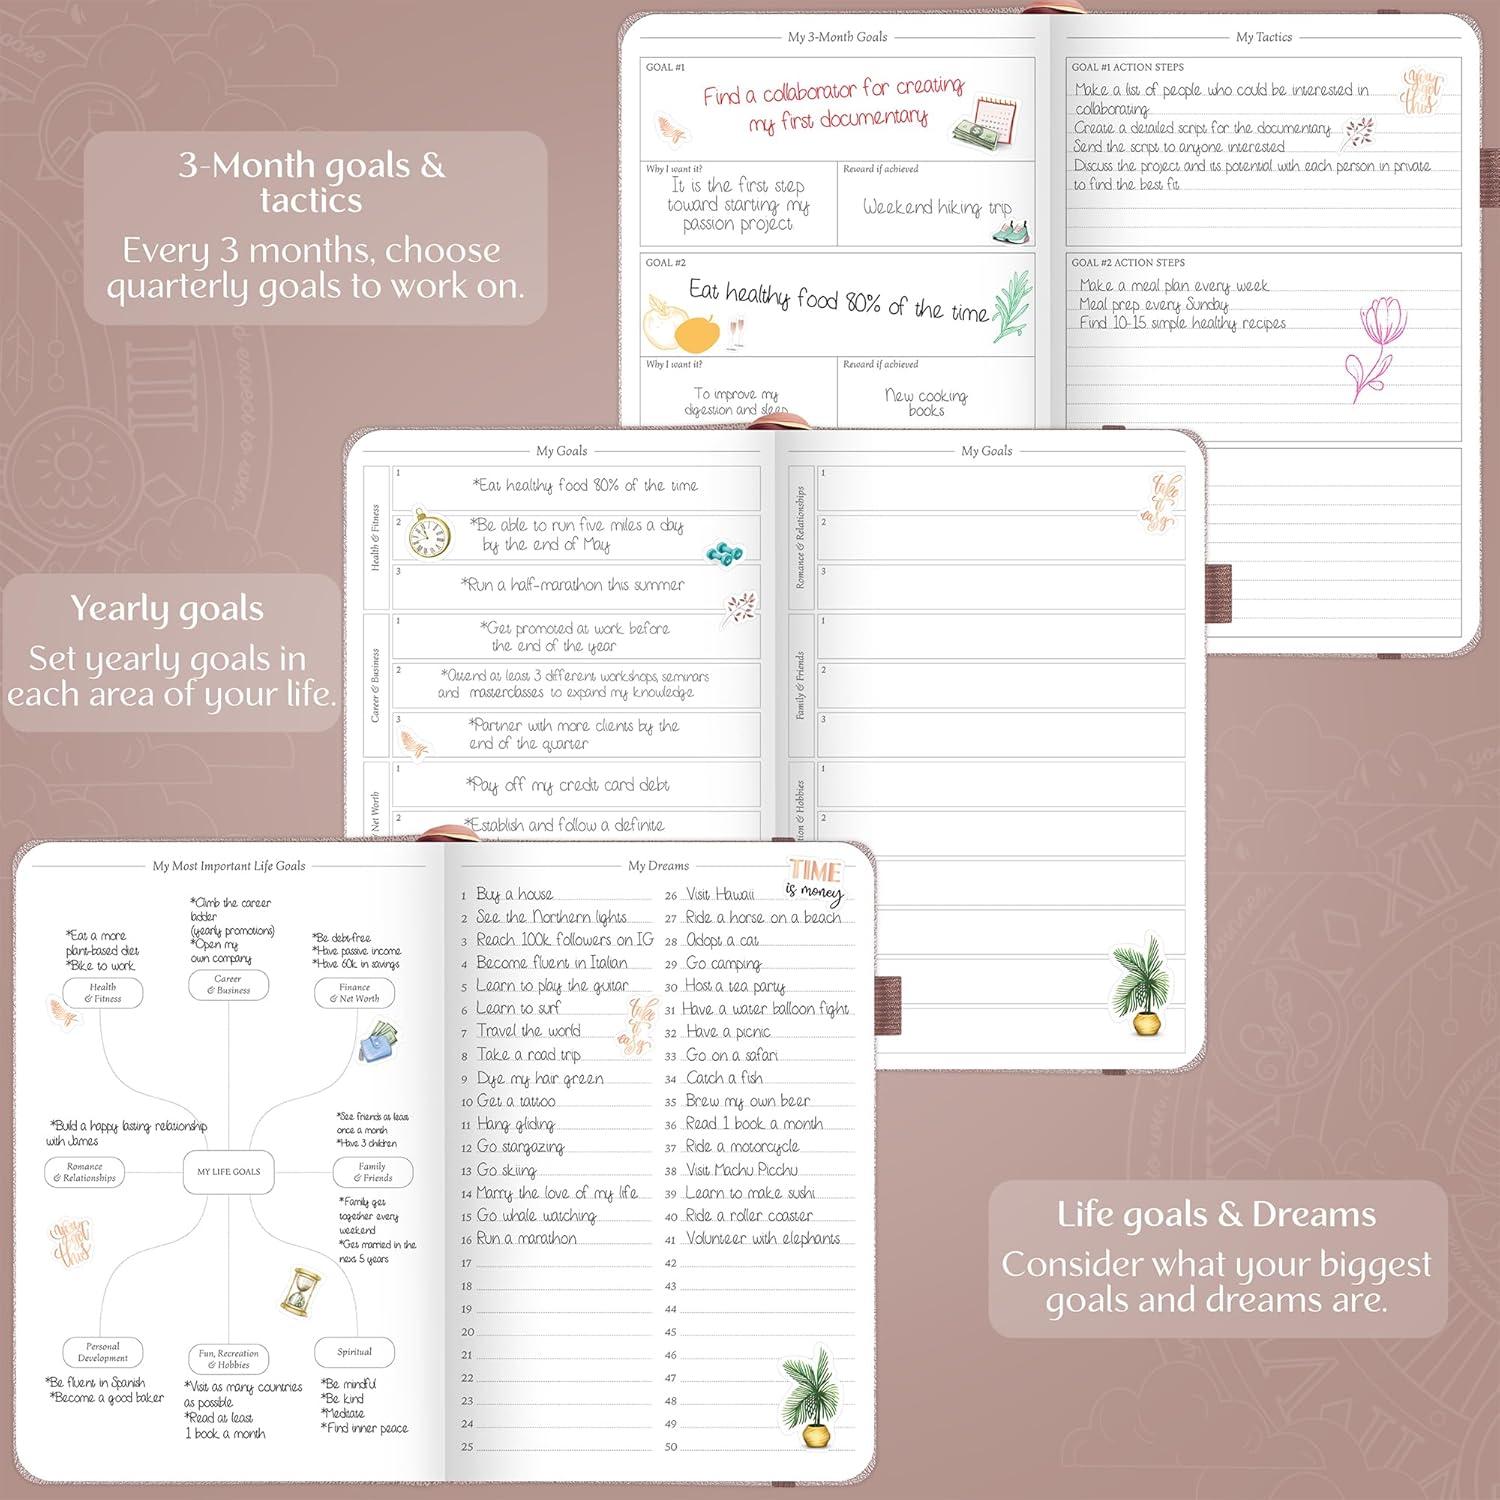 3-Month goals &
tactics
Every 3 months, choose
quarterly goals to work on.
My 3-Month Goals
GOAL #1
Find a collaborator for creating
my first documentary
Why I want it?
It is the first step
toward starting my
passion project
Reward if achieved
Weekend hiking trip
GOAL #2
Eat healthy food 80% of the time
Why I want it?
To improve my
digestion and sleep
Reward if achieved
New cooking
books
My Tactics
GOAL #1 ACTION STEPS
you've
got
this
Make a list of people who could be interested in
collaborating
Create a detailed script for the documentary
Send the script to anyone interested
Discuss the project and its potential with each person in private
to find the best fit
GOAL #2 ACTION STEPS
Make a meal plan every week
Meal prep every Sunday
Find 10-15 simple healthy recipes
Yearly goals
Set yearly goals in
each area of your life.
My Goals
Health & Fitness
1
*Eat healthy food 80% of the time
2
*Be able to run five miles a day
by the end of May
3
*Run a half-marathon this summer
Career & Business
1
*Get promoted at work before
the end of the year
2
*Attend at least 3 different workshops, seminars
and masterclasses to expand my knowledge
3
*Partner with more clients by the
end of the quarter
Net Worth
1
*Pay off my credit card debt
2
*Establish and follow a definite
My Goals
Romance & Relationships
1
2
3
take
it
easy
Family & Friends
1
2
3
& Hobbies
1
2
My Most Important Life Goals
*Eat a more
plant-based diet
*Bike to work
Health
& Fitness
*Climb the career
ladder
(yearly promotions)
*Open my
own company
Career
& Business
*Be debt-free
*Have passive income
*Have 60k in savings
Finance
& Net Worth
*Build a happy lasting relationship
with James
Romance
& Relationships
MY LIFE GOALS
*See friends at least
once a month
*Have 3 children
Family
& Friends
*Family get
together every
weekend
*Get married in the
next 5 years
you've
got
this
Personal
Development
*Be fluent in Spanish
*Become a good baker
Fun, Recreation
& Hobbies
*Visit as many countries
as possible
*Read at least
1 book a month
Spiritual
*Be mindful
*Be kind
*Meditate
*Find inner peace
My Dreams
TIME
is money
1 Buy a house
2 See the Northern lights
3 Reach 100k followers on IG
4 Become fluent in Italian
5 Learn to play the guitar
6 Learn to surf
7 Travel the world
8 Take a road trip
9 Dye my hair green
10 Get a tattoo
11 Hang gliding
12 Go stargazing
13 Go skiing
14 Marry the love of my life
15 Go whale watching
16 Run a marathon
17
18
19
20
21
22
23
24
25
take
it
easy
26 Visit Hawaii
27 Ride a horse on a beach
28 Adopt a cat
29 Go camping
30 Host a tea party
31 Have a water balloon fight
32 Have a picnic
33 Go on a safari
34 Catch a fish
35 Brew my own beer
36 Read 1 book a month
37 Ride a motorcycle
38 Visit Machu Picchu
39 Learn to make sushi
40 Ride a roller coaster
41 Volunteer with elephants
42
43
44
45
46
47
48
49
50
Life goals & Dreams
Consider what your biggest
goals and dreams are.